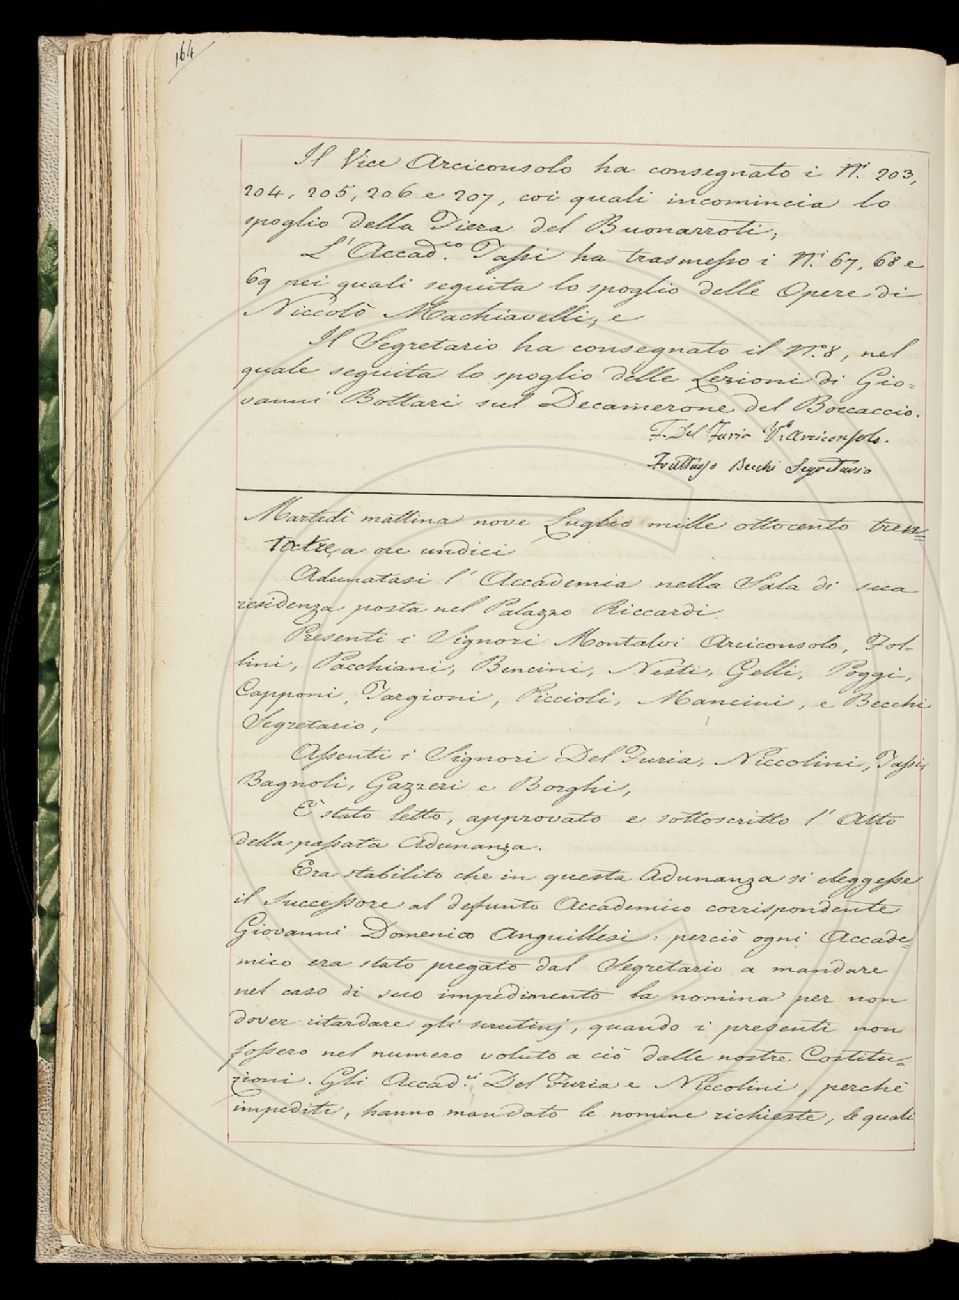 164
Il Vice Arciconsolo ha consegnato i N.i 203,
204, 205, 206 e 207, coi quali incomincia lo
spoglio della Fiera del Buonarroti;
L'Accad.co Tassi ha trasmesso i N.i 67, 68 e
69 nei quali seguita lo spoglio delle Opere di
Niccolò Machiavelli; e
Il Segretario ha consegnato il N.o 8, nel
quale seguita lo spoglio delle Lezioni di Gio=
vanni Bottari sul Decamerone del Boccaccio.
F. Del Furia V.e Arciconsolo.
Fruttuoso Becchi Segretario
Martedì mattina nove Luglio mille ottocento tren=
tatre, a ore undici
Adunatasi l'Accademia nella Sala di sua
residenza posta nel Palazzo Riccardi.
Presenti i Signori Montalvi Arciconsolo, Fol-
lini, Pacchiani, Bencini, Nesti, Gelli, Poggi,
Capponi, Targioni, Piccioli, Mancini, e Becchi
Segretario,
Assenti i Signori Del Furia, Niccolini, Tassi,
Bagnoli, Gazzeri e Borghi,
È stato letto, approvato e sottoscritto l'Atto
della passata Adunanza.
Era stabilito che in questa Adunanza si eleggesse
il Successore al defunto Accademico corrispondente
Giovanni Domenico Anguillesi: perciò ogni Accade=
mico era stato pregato dal Segretario a mandare
nel caso di suo impedimento la nomina per non
dover ritardare gli scrutinj, quando i presenti non
fossero nel numero voluto a ciò dalle nostre Costitu=
zioni. Gli Accad.ci Del Furia e Niccolini, perchè
impediti, hanno mandato le nomine richieste, le quali